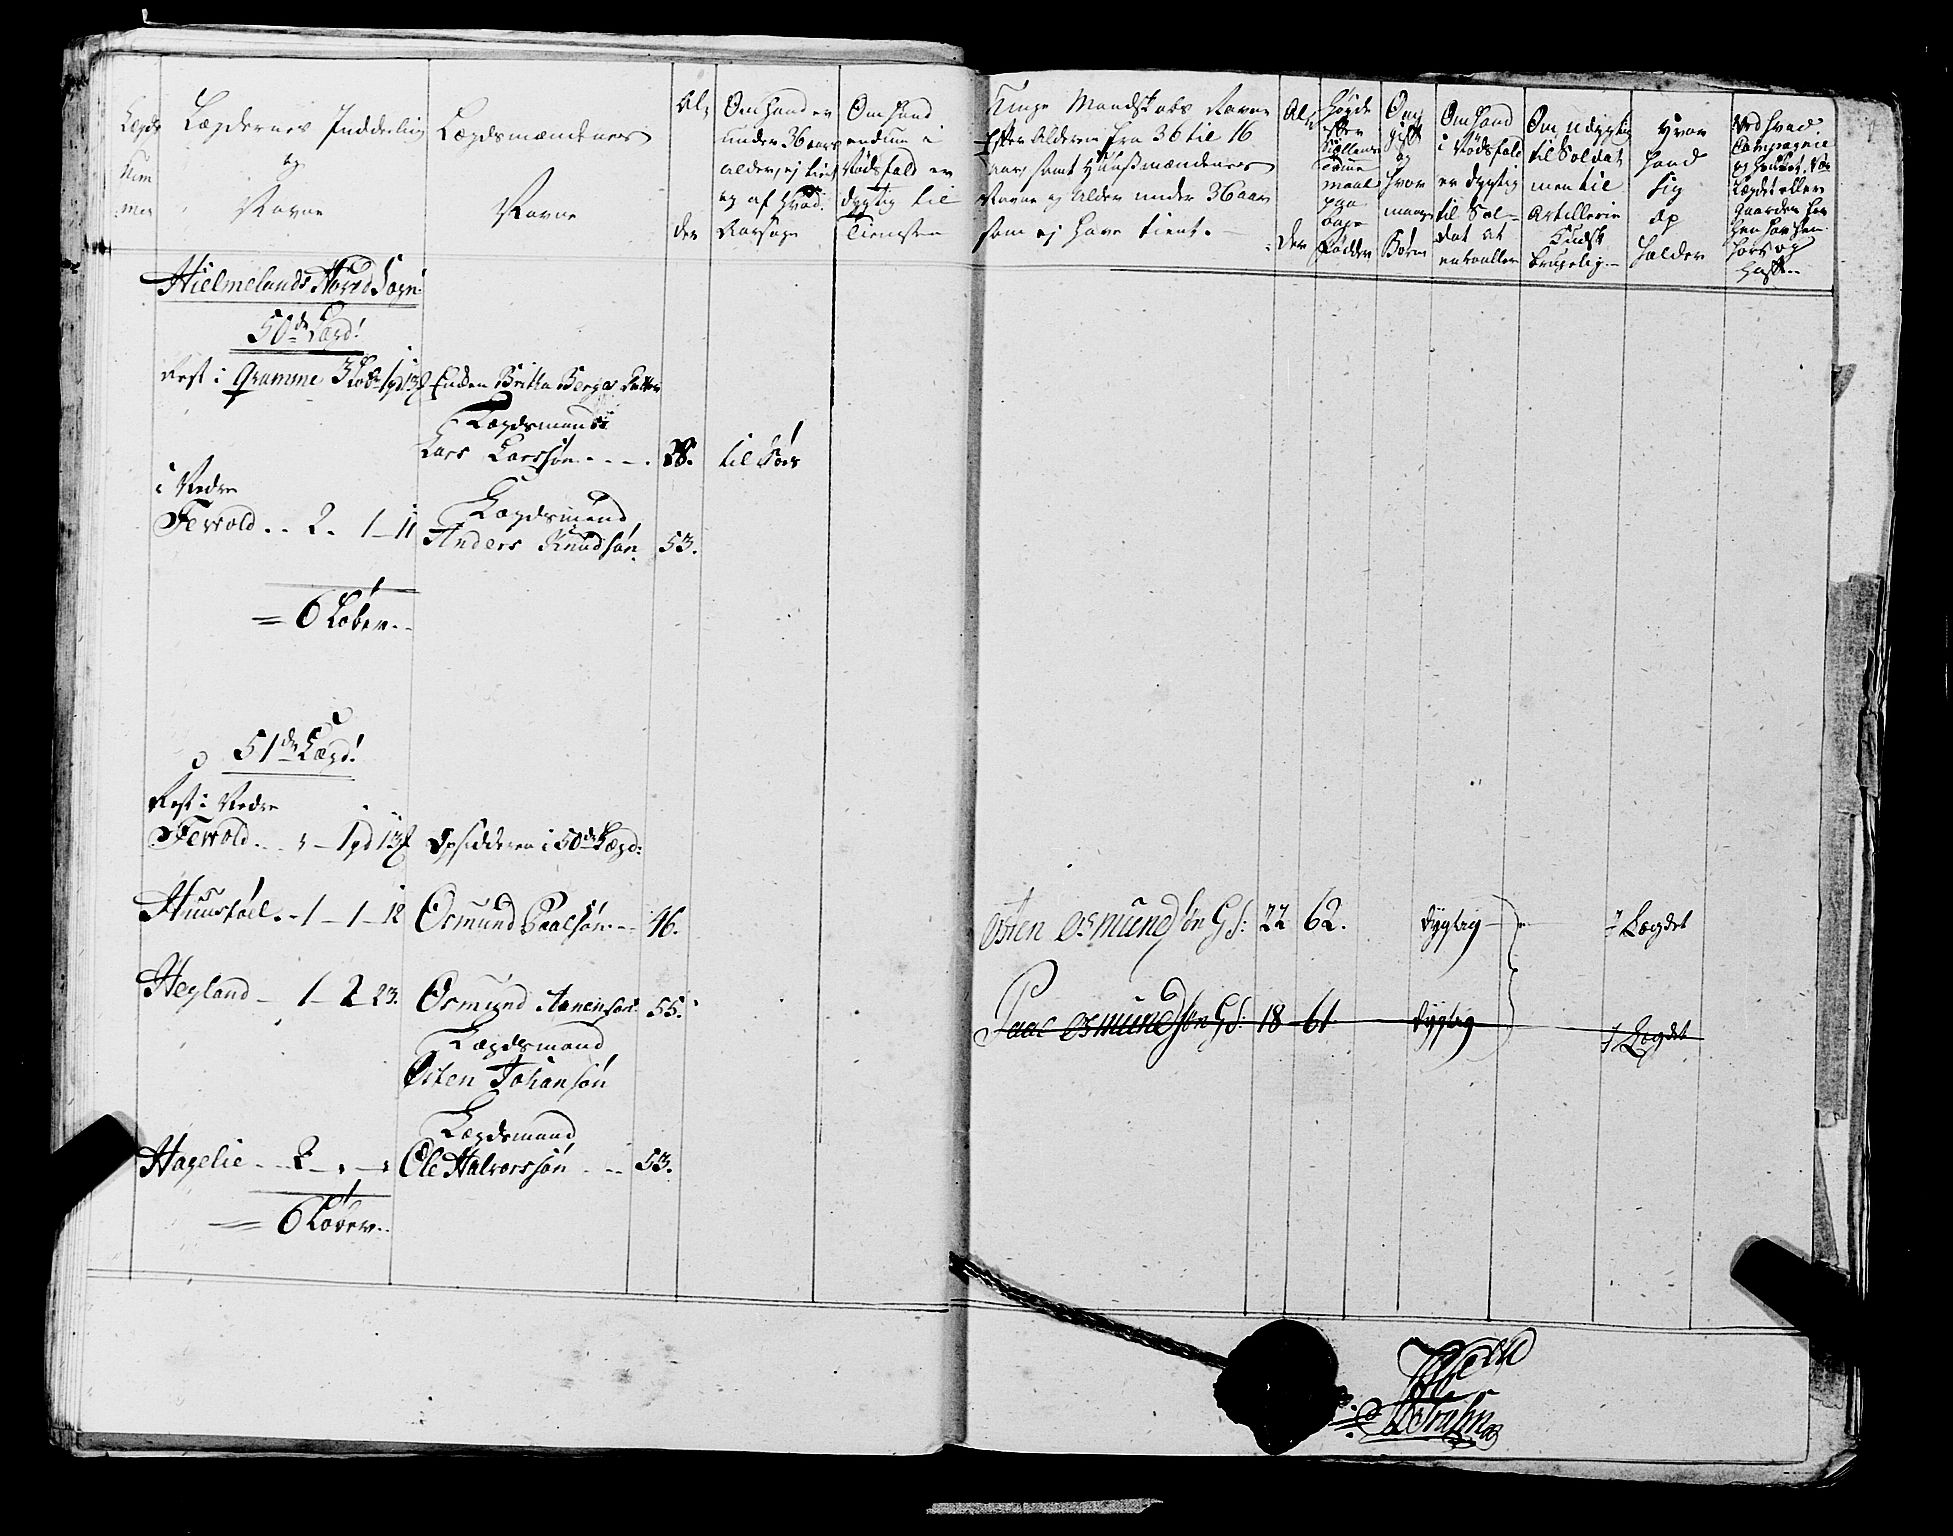 Lægds
Num
mer
Lægdernes Inddeeling
og
Navne
Lægdsmændenes
Navne
Al,
der
Om Hand er
under 36 aars
alder, ej tient
og af Hvad
Aarsage
Om Hand
endnu i
Nødsfald er
dygtig til
Tienesten
Unge Mandskabs Navne
Efter Alderen fra 36 til 16
aar, samt Huusmændenes
Navne og Alder under 36 aar
som ej have tient.
Al,
der
Høyde
efter
Siællands
Tomme
maal
paa
bare
Fødder
Om
gift
og
hvor
mange
Børn
Om Hand
i Nødsfald
er dygtig
til Sol-
dat at
enroullere
Om udygtig
til Soldat
men til
Artillerie
Kudsk
brugelig
Hvor
Hand
sig
op
holder
Ved Hvad
Compagnie
Lægdet eller
Gaarden
Hielmelands Hoved Sogn
50de Lægd!
Rest i Qvamme 3 Løb 1 pd 13
Enken Britta Berges Datter
Lægdsmand
Lars Larssøn 38. til Søes
i Nedre
Tevold 2. 1 11
Lægdsmand
Anders Knudsøn 53.
= 6 Løber
51de Lægd!
Rest i Nedre
Tevold 1 pd 13 Opsidderen i 50de Lægd:
Huustøel. 1 1 12 Osmund Paalsøn 46.
Osten Osmundsøn G S: 22 62. dygtig i Lægdet
Hegland 1 2 23. Osmund Aanensøn 55.
Paal Osmundsøn G S: 18 61 dygtig i Lægdet
Lægdsmand
Osten Johansøn
Lægdsmand
Hagelie 2 Ole Halvorssøn 53.
= 6 Løber